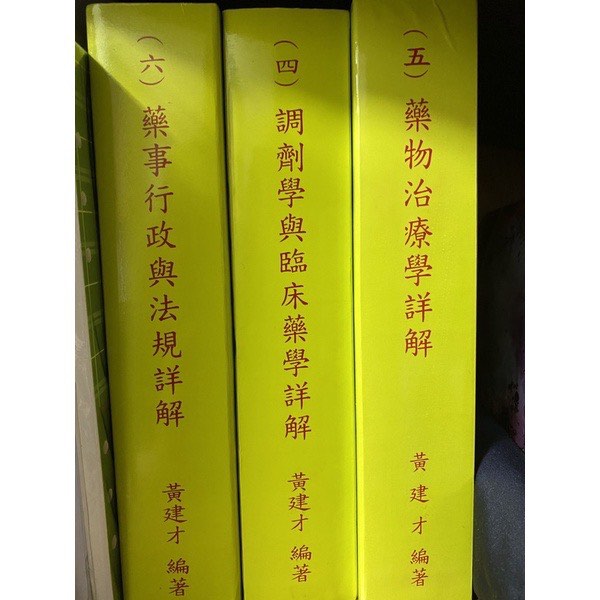 （六）藥事行政與法規詳解
黃建才 編著
（四）調劑學與臨床藥學詳解
黃建才 編著
（五）藥物治療學詳解
黃建才 編著